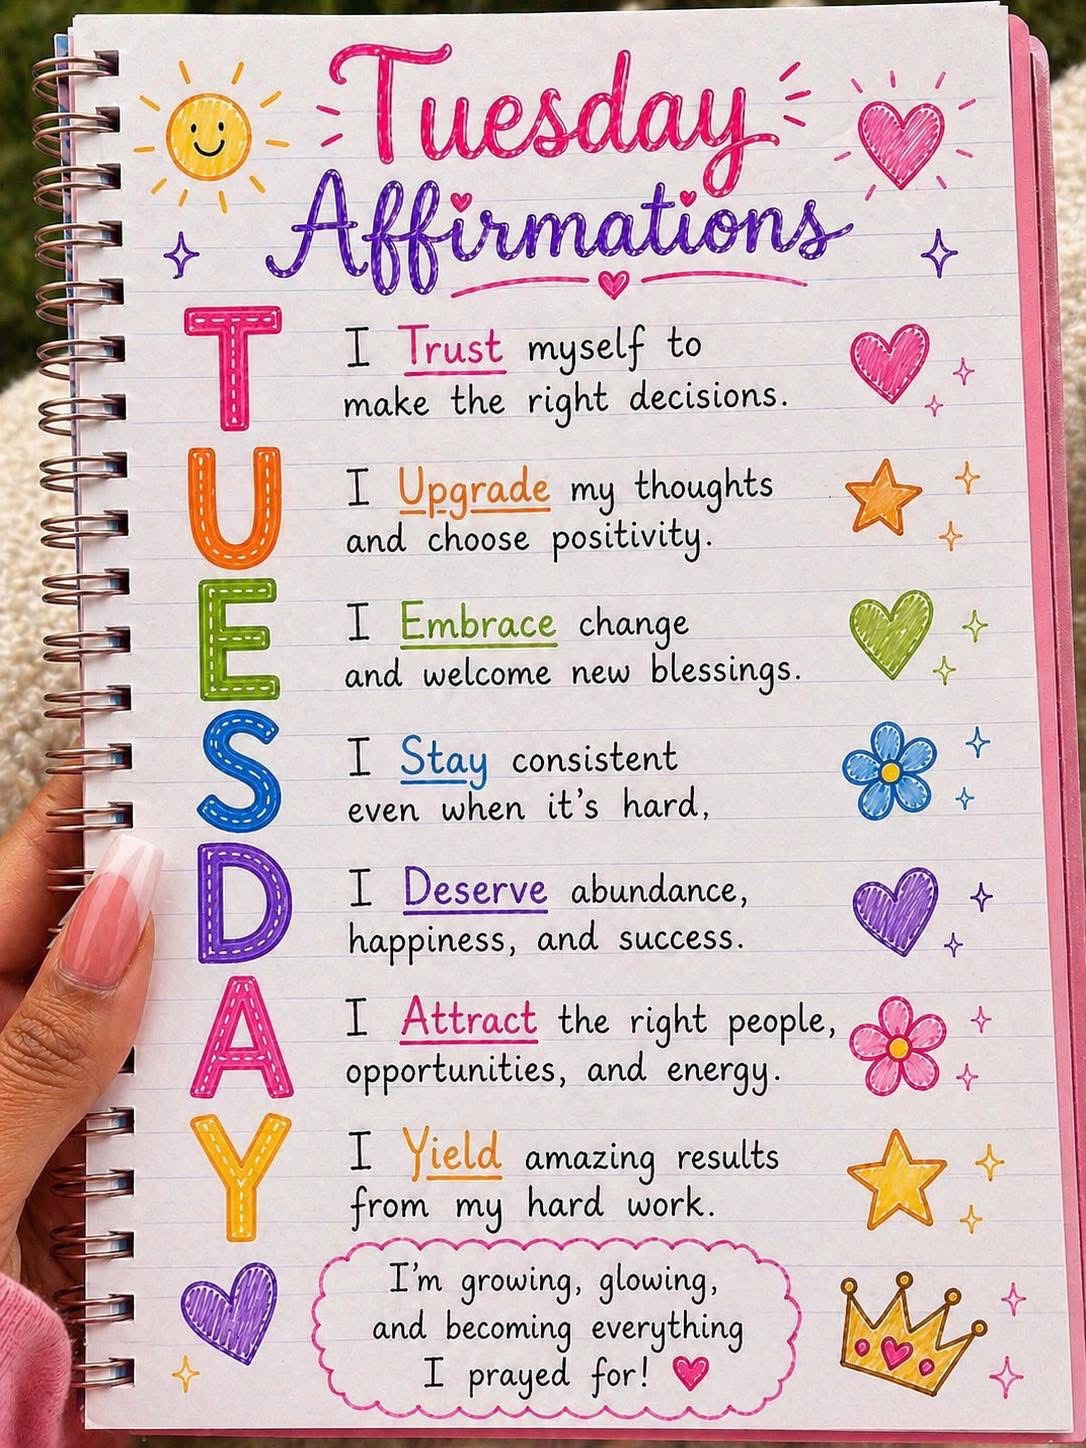 Tuesday
Affirmations
T
I Trust myself to
make the right decisions.
U
I Upgrade my thoughts
and choose positivity.
E
I Embrace change
and welcome new blessings.
S
I Stay consistent
even when it's hard,
D
I Deserve abundance,
happiness, and success.
A
I Attract the right people,
opportunities, and energy.
Y
I Yield amazing results
from my hard work.
I'm growing, glowing,
and becoming everything
I prayed for!